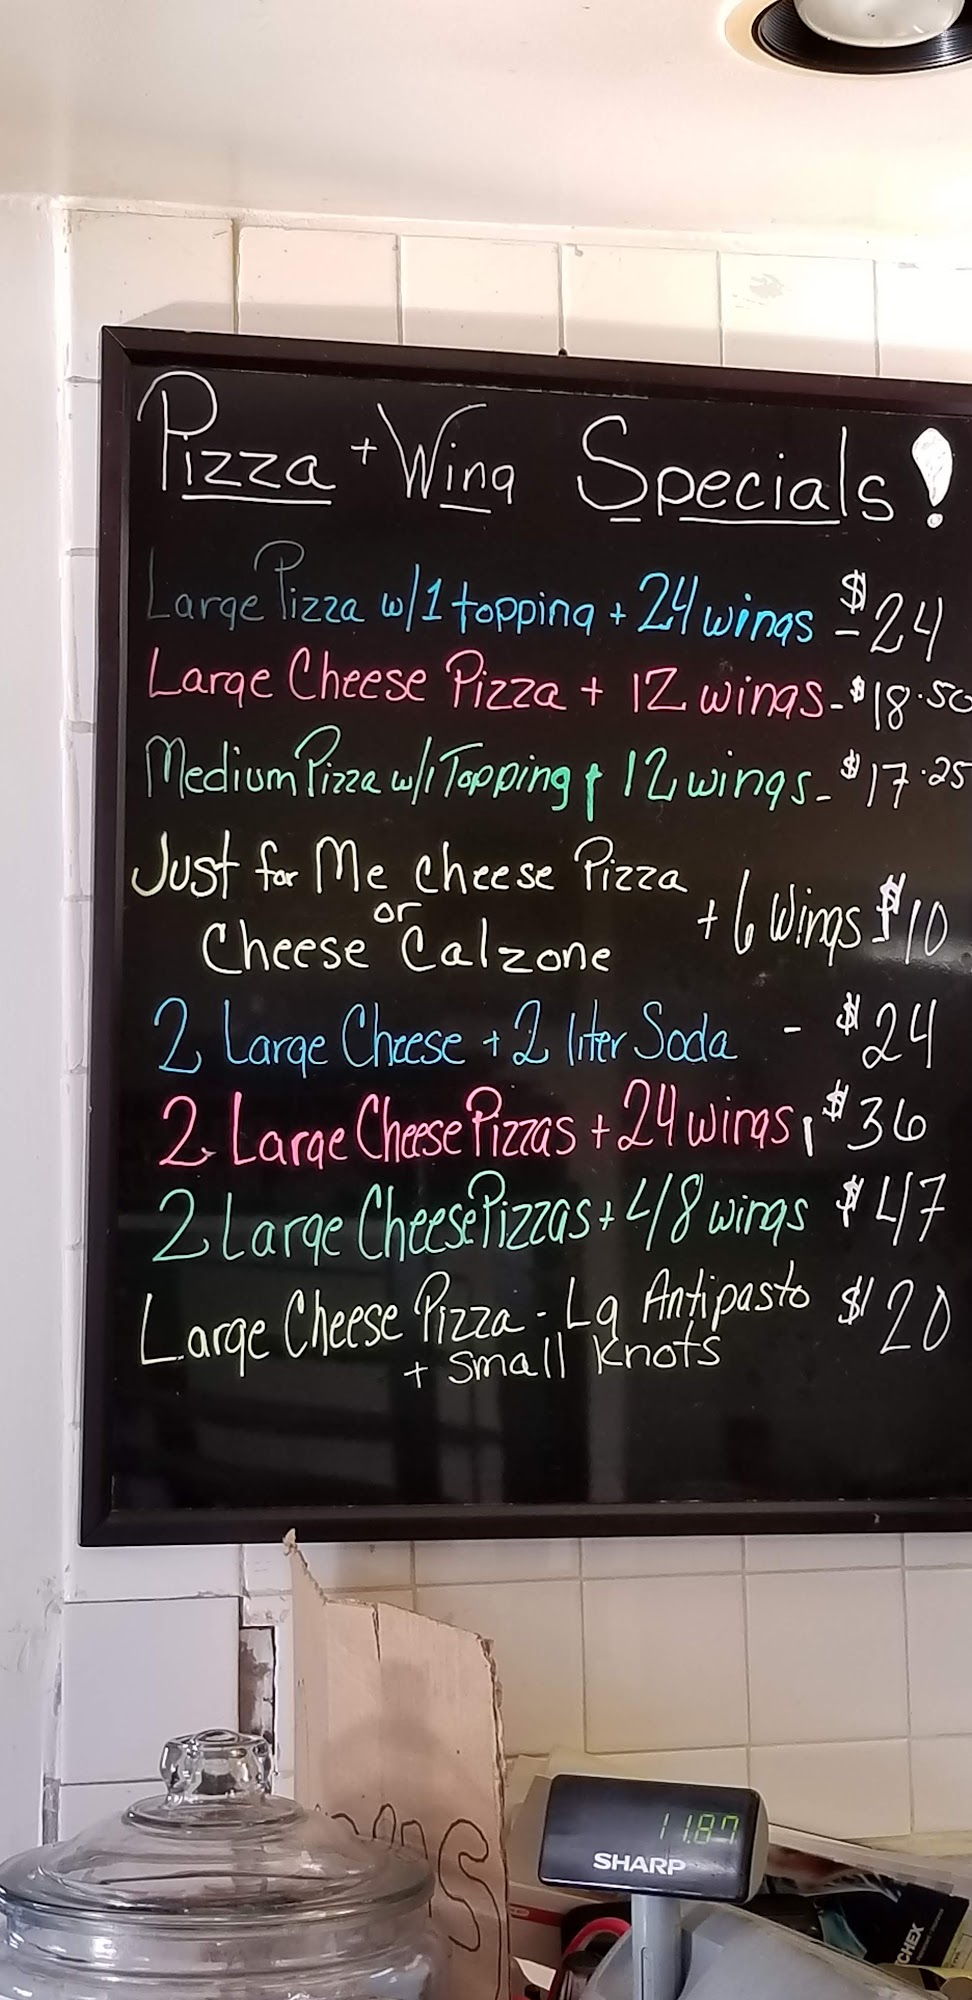 Pizza + Wing Specials!
Large Pizza w/1 topping + 24 wings - $24
Large Cheese Pizza + 12 wings - $18.50
Medium Pizza w/1 Topping + 12 wings - $17.25
Just for Me Cheese Pizza
or
Cheese Calzone + 6 Wings $10
2 Large Cheese + 2 liter Soda - $24
2 Large Cheese Pizzas + 24 wings $36
2 Large Cheese Pizzas + 48 wings $47
Large Cheese Pizza - Lg Antipasto $20
+ Small Knots
11.87
SHARP